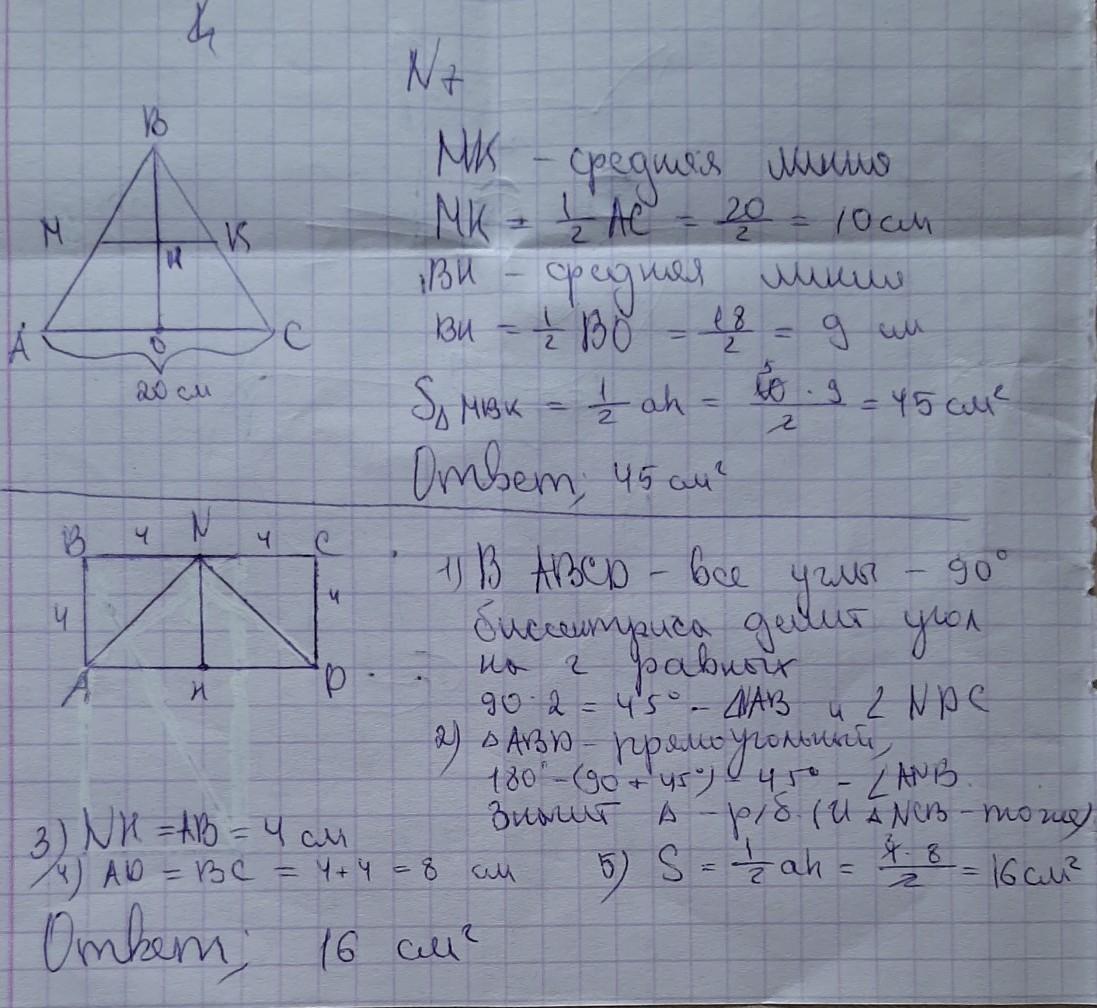 N7
B
M K
H
A O C
20 см
MK - средняя линия
MK = 1/2 AC = 20/2 = 10 см
BH - средняя линия
BH = 1/2 BO = 18/2 = 9 см
S△MBK = 1/2 ah = 10 · 9 / 2 = 45 см²
Ответ; 45 см²
B 4 N 4 C
4 4
A H D
1) В ABCD - все углы - 90°
биссектриса делит угол
на 2 равных
90 : 2 = 45° - ∠NAB и ∠NDC
2) △ABD - прямоугольный,
180° - (90 + 45°) = 45° - ∠ANB.
Значит △ - р/б. (И △NCB - тоже)
3) NH = AB = 4 см
4) AD = BC = 4+4 = 8 см
5) S = 1/2 ah = 4 · 8 / 2 = 16 см²
Ответ; 16 см²